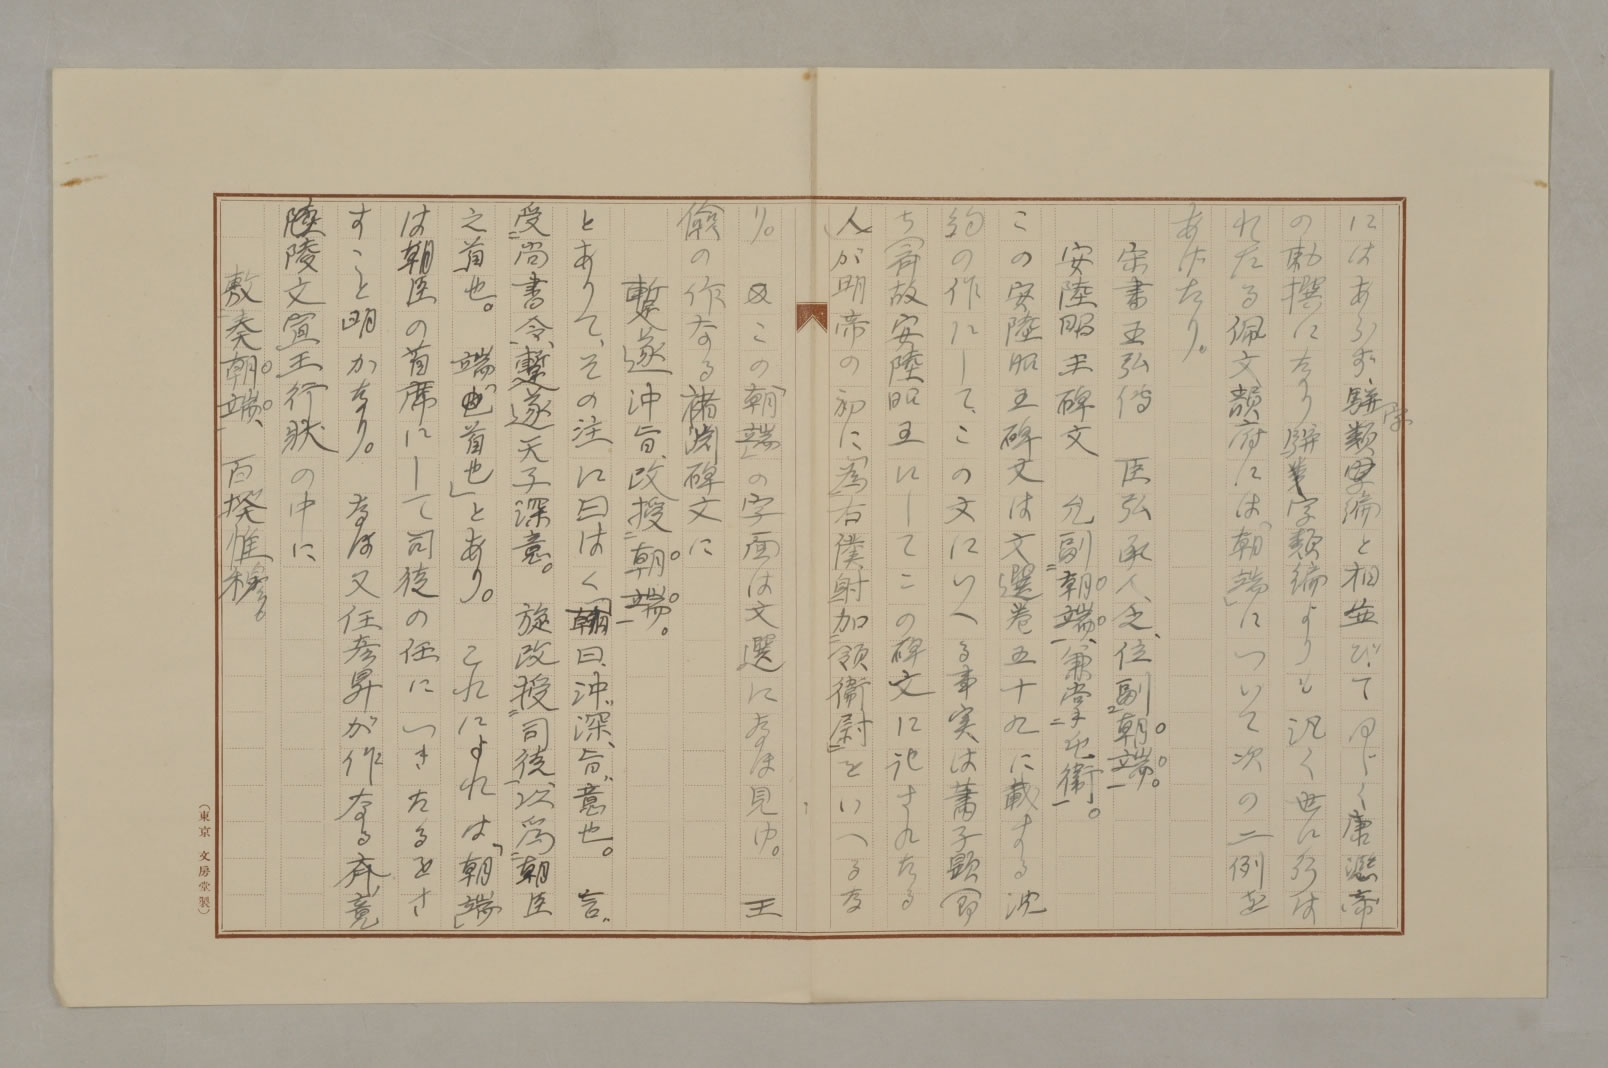 にはあらず駢類字編と相並びて同じく唐凞帝
の勅撰になり駢字類編よりも汎く世に行は
れたる佩文韻府には「朝端」について次の二例を
あげたり。
宋書王弘伝 臣弘承人乏、位副朝端。
安陸昭王碑文 允副朝端、兼掌屯衛。
この安陸昭王碑文は文選巻五十九に載する沈
約の作にして、この文にいへる事実は蕭子顕
ち斉故安陸昭王にしてこの碑文に記されたる
人が明帝の初に「為右僕射加領衛尉」といへるな
り。 この「朝端」の字面は文選になほ見ゆ。 王
倹の作なる褚淵碑文に
暫遂沖旨、改授朝端。
とありて、その注に曰はく「翰曰、沖、深、旨、意也。 言、
受尚書令、暫遂天子深意。 旋改授司徒、以為朝臣
之首也。 端、首也」とあり。 これによれば「朝端」
は朝臣の首席にして司徒の任につきたるをさ
すこと明かなり。 なほ又任彦昇が作なる斉竟
陵文宣王行状の中に
敷奏朝端、百揆惟穆
(東京 文房堂製)